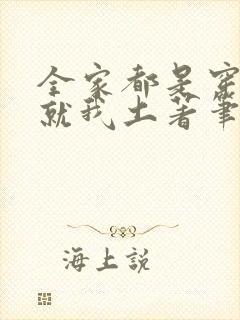 全家都是穿
就我土著筆
海上說